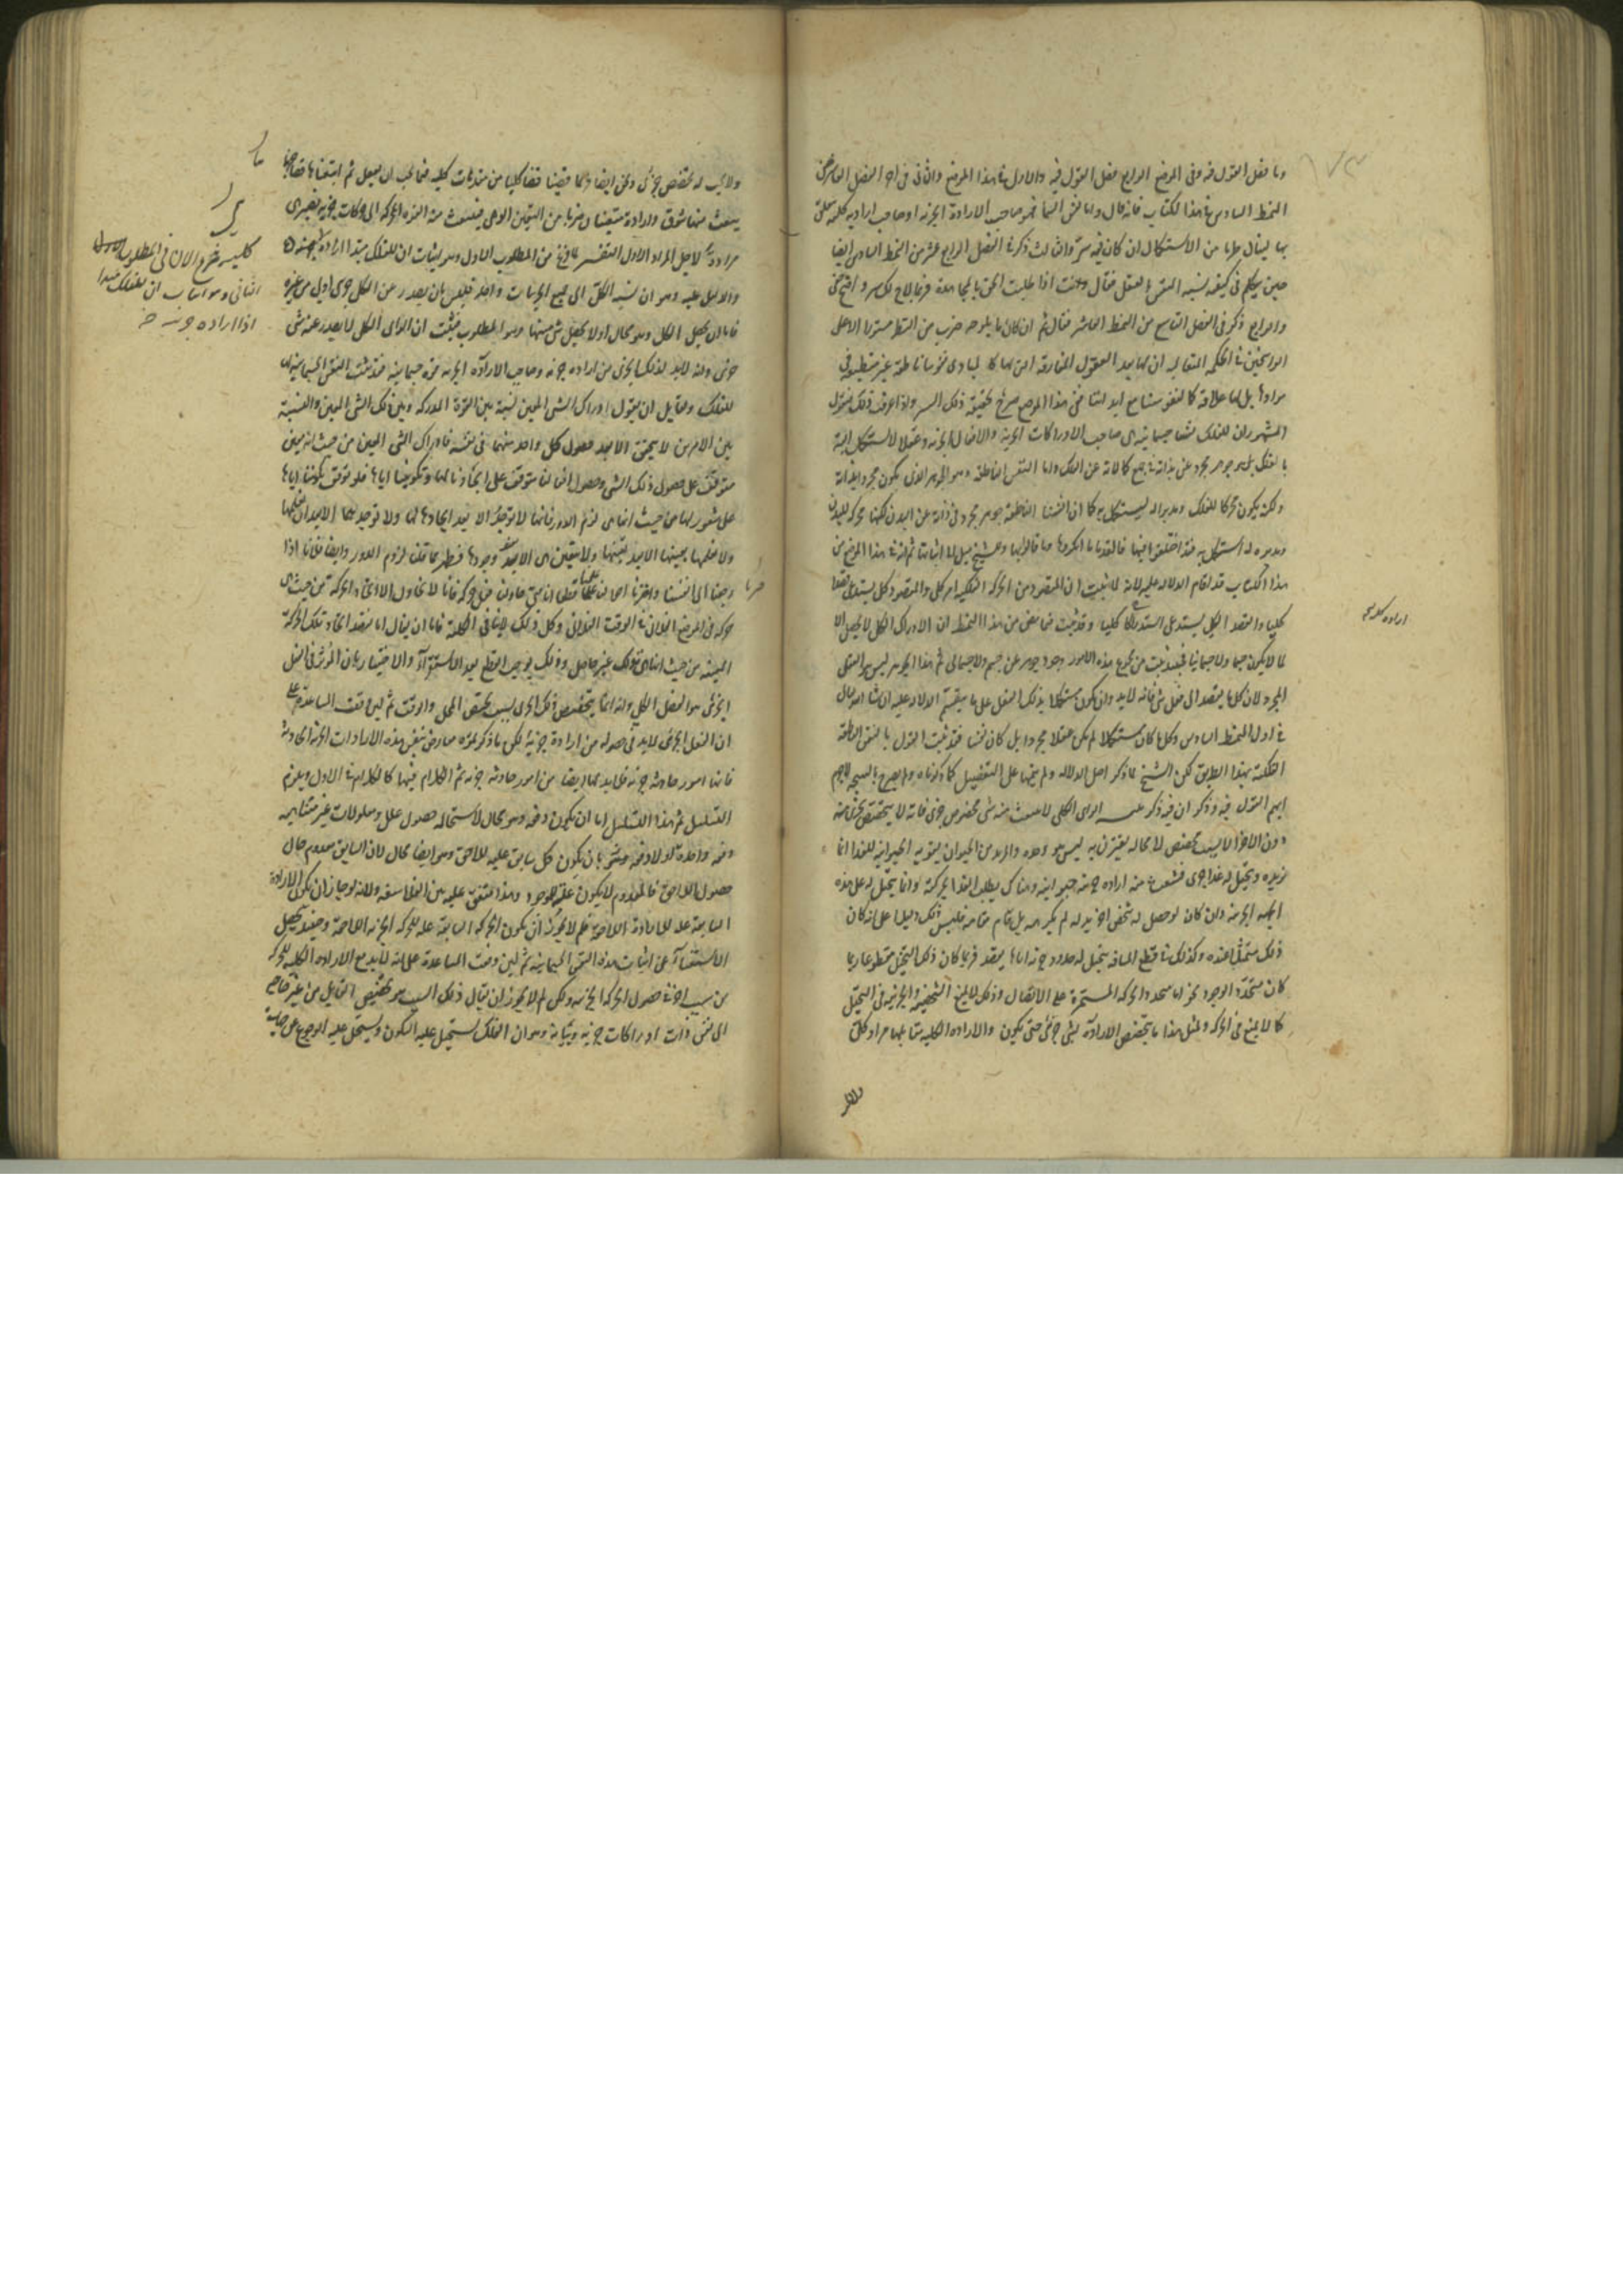 وما فصل القول فيه وفى الموضع الرابع فصل القول فيه والاول فى هذا الموضع والثانى فى اخر الفصل العاشر من
النمط السادس فى هذا الكتاب فانه قال واما نفس السماء فهو صاحب الارادة الجزئية او صاحب ارادة كلية تتعلق
بها لينال ضربا من الاستكمال ان كان فيه سر والثالث ذكره فى الفصل الرابع عشر من النمط السادس ايضا
حين تكلم فى كيفية تشبه النفس بالعقل فقال وانت اذا طلبت الحق بالمجاهدة فربما لاح لك سر واضح خفى
والرابع ذكر فى الفصل التاسع من النمط العاشر فقال ثم ان كان ما يلوحه ضرب من النظر مستورا الا على
الراسخين فى الحكمة المتعالية ان لها بعد العقول المفارقة التى لها كالمبادى نفوسا ناطقة غير منطبعة فى
موادها بل لها علاقة ما كما لنفوسنا مع ابداننا ففى هذا الموضع صرح بحقيقة ذلك السر واذا عرفت ذلك فنقول
المشهور ان للفلك نفسا جسمانية هى صاحب الادراكات الجزئية والافعال الجزئية وعقلا لا يستكمل البتة
بالفلك بل هو جوهر مجرد عن بذاته فى جميع كمالاته عن الفلك واما النفس الناطقة وهو الجوهر الذى يكون مجردا بذاته
ولكنه يكون محركا للفلك ومدبرا له ليستكمل به كما ان انفسنا الناطقة جوهر مجرد فى ذاته عن البدن لكنها محركة للبدن
ومدبرة له لتستكمل به فقد اختلفوا فيها فالقدماء ما انكروها وما قالوا بها والشيخ يميل الى اثباتها ثم انه فى هذا الموضع من
هذا الكتاب قد اقام الدلالة عليه لانه لما ثبت ان المقصود من الحركة الفلكية امر كلى والمقصود الكلى يستدعى قصدا
كليا والقصد الكلى يستدعى استدراكا كليا وقد ثبت فيما مضى من هذا النمط ان الادراك الكلى لا يحصل الا
لما لا يكون جسما ولا جسمانيا فحينئذ ثبت من مجموع هذه الامور وجود جوهر عن جسم ولا جسمانى ثم هذا الجوهر ليس هو العقل
المجرد لان كل ما يقصد الى فعل شى فانه لابد وان يكون مستكملا بذلك الفعل على ما سيقيم الدلالة عليه ان شاء الله تعالى
فى اول النمط السادس وكل ما كان مستكملا لم يكن عقلا مجردا بل كان نفسا فقد ثبت القول بالنفس الناطقة
الفلكية بهذا الطريق لكن الشيخ لما ذكر اصل الدلالة ولم يتمها على التفصيل كما ذكرناه ولم يصرح بالنتيجة لا جرم
ابهم القول فيه وذكر ان فيه الراى الكلى لا ينبعث منه شى مخصوص جزئى فانه لا يتخصص بجزئى منه
دون الاخر الا بسبب مخصص لا محالة يقترن به ليس هو وحده والمريد من الحيوان بقوته الحيوانية للغذاء انما
يريده ويتخيل له غذاء جزئى فينبعث منه ارادة جزئية حيوانية وهناك يطلب الغذاء بحركته وانما يتخيل له على هذه
الجهة الجزئية وان كان لو حصل له شخص اخر بدله لم يكرهه بل قام مقامه فليس ذلك دليلا على انه كان
ذلك متمثلا عنده وكذلك فى قطع المسافة يتخيل له حدود جزئية اياها يقصد فربما كان ذلك التخيل مقطوعا ربما
كان متجدد الوجود نحوا ما متجدد الحركة المستمرة على الاتصال وذلك لا يمنع الشخصية والجزئية فى التخيل
كما لا يمنع فى الحركة ولمثل هذا ما يتخصص الارادة لشى جزئى حتى يكون والارادة الكلية تقابلها مراد كلى
ولا يجب له تخصص جزئى ونحن ايضا فربما قضينا قضاء كليا من مقدمات كلية فيما يجب ان نفعل ثم اتبعناها قضاء جزئيا
ينبعث منها شوق وارادة متعينا ضربا من التعين الوهمى فينبعث منه القوة المحركة الى حركات جزئية تصير هى
مرادة لاجل المراد الاول التفسير لما فرغ من المطلوب الاول وهو اثبات ان للفلك مبدأ الارادة
والدليل عليه وهو ان نسبة الكلى الى جميع الجزئيات واحدة فليس بان يصدر عن الكلى جزئى اولى من غيره
فاما ان يحصل الكل وهو محال او لا يحصل شى منها وهو المطلوب فثبت ان الراى الكلى لا يصدر عنه شى
جزئى وانه لابد لذلك الجزئى من ارادة جزئية وصاحب الارادة الجزئية قوة جسمانية فقد ثبت النفس الجسمانية
للفلك ولقايل ان يقول ادراك الشى المعين نسبة بين القوة المدركة وبين ذلك الشى المعين والنسبة
بين الامرين لا يتحقق الا بعد حصول كل واحد منهما فى نفسه فادراك الشى المعين من حيث انه معين
متوقف على حصول ذلك الشى وحصول افعالنا متوقف على ايجادنا لها وتكويننا اياها فلو توقف تكويننا اياها
على شعورنا بها من حيث انها هى لزم الدور فاننا لا نوجدها الا بعد ايجادها لها ولا نوجدها الا بعد ان نعلمها
ولا نعلمها بعينها الا بعد تعينها ولا يتعين هى الا بعد وجودها فظهر بما قلنا لزوم الدور وايضا فلانا اذا
رجعنا الى انفسنا واعتبرنا احوالنا علمنا قطعا اننا متى حاولنا فعل حركة فانا لا نحاول الا ايجاد الحركة من حيث هى
حركة فى الموضع الفلانى فى الوقت الفلانى وكل ذلك لا ينافى الكلية فاما ان يقال انا نقصد ايجاد تلك الحركة
المعينة من حيث انها هى فذلك غير حاصل وذلك يوجب القطع بعد الاستقراء والاختبار بان المؤثر فى الفعل
الجزئى هو الفعل الكلى وانه انما يتخصص ذلك الجزئى بسبب تخصص المحل والوقت ثم لئن وقعت المساعدة على
ان الفعل الجزئى لابد فى حصوله من ارادة جزئية لكن ما ذكرتموه معارض بنفس هذه الارادات الجزئية الحادثة
فانها امور حادثة جزئية فلابد لها ايضا من امور حادثة جزئية ثم الكلام فيها كالكلام فى الاول ويلزم
التسلسل ثم هذا التسلسل اما ان يكون دفعة وهو محال لاستحالة حصول علل ومعلولات غير متناهية
دفعة واحدة او لا دفعة وهو بان يكون كل سابق علة للاحق وهو ايضا محال لان السابق معدوم حال
حصول اللاحق فالمعدوم لا يكون علة للموجود وهذا متفق عليه بين الفلاسفة ولانه لو جاز ان يكون الارادة
السابقة علة للارادة اللاحقة فلم لا يجوز ان يكون الحركة السابقة علة للحركة الجزئية اللاحقة وحينئذ يحصل
الاستغناء عن اثبات هذه النفس الجسمانية ثم لئن وقعت المساعدة على انه لابد مع الارادة الكلية للحركة
من سبب اخر فى حصول الحركة الجزئية ولكن لم لا يجوز ان يقال ذلك السبب هو تخصيص القابل من غير حاجة
الى نفس ذات ادراكات جزئية وبيانه وهو ان الفلك يستحيل عليه السكون ويستحيل عليه الرجوع عن جانب
كلية شرع الان فى المطلوب
الثانى وهو اثبات ان للفلك مبدأ
اذا ارادة جزئية